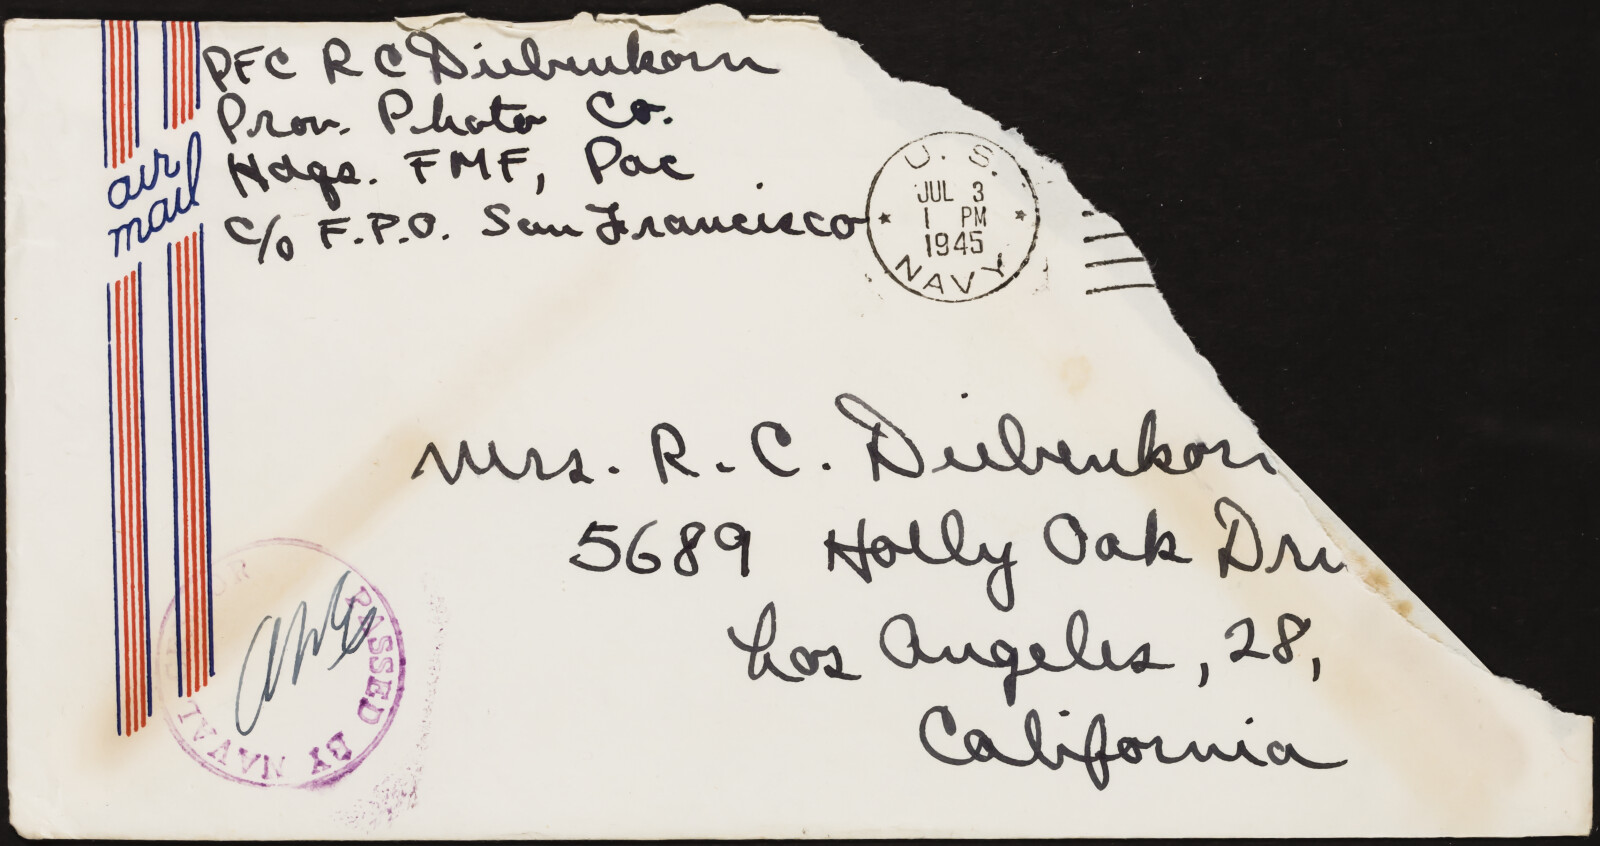 PFC R C Diebenkorn
Prov. Photo Co.
Hdqs. FMF, Pac
c/o F.P.O. San Francisco
air
mail
U.S.
JUL 3
1 PM
1945
NAVY
Mrs. R. C. Diebenkorn
5689 Holly Oak Dri
Los Angeles, 28,
California
PASSED BY NAVAL CENSOR